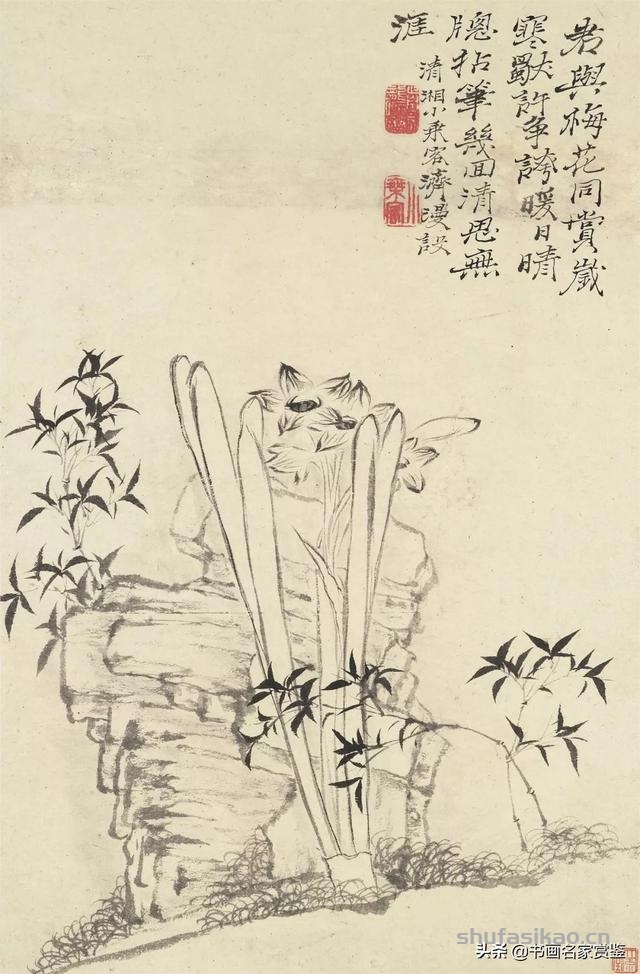 君與梅花同賞歲
寒獨許爭誇暖日晴
牕拈筆幾回清思無
涯
清湘小乘客濟漫設
小乘客
shufasikao.cn
头条 @书画名家赏鉴